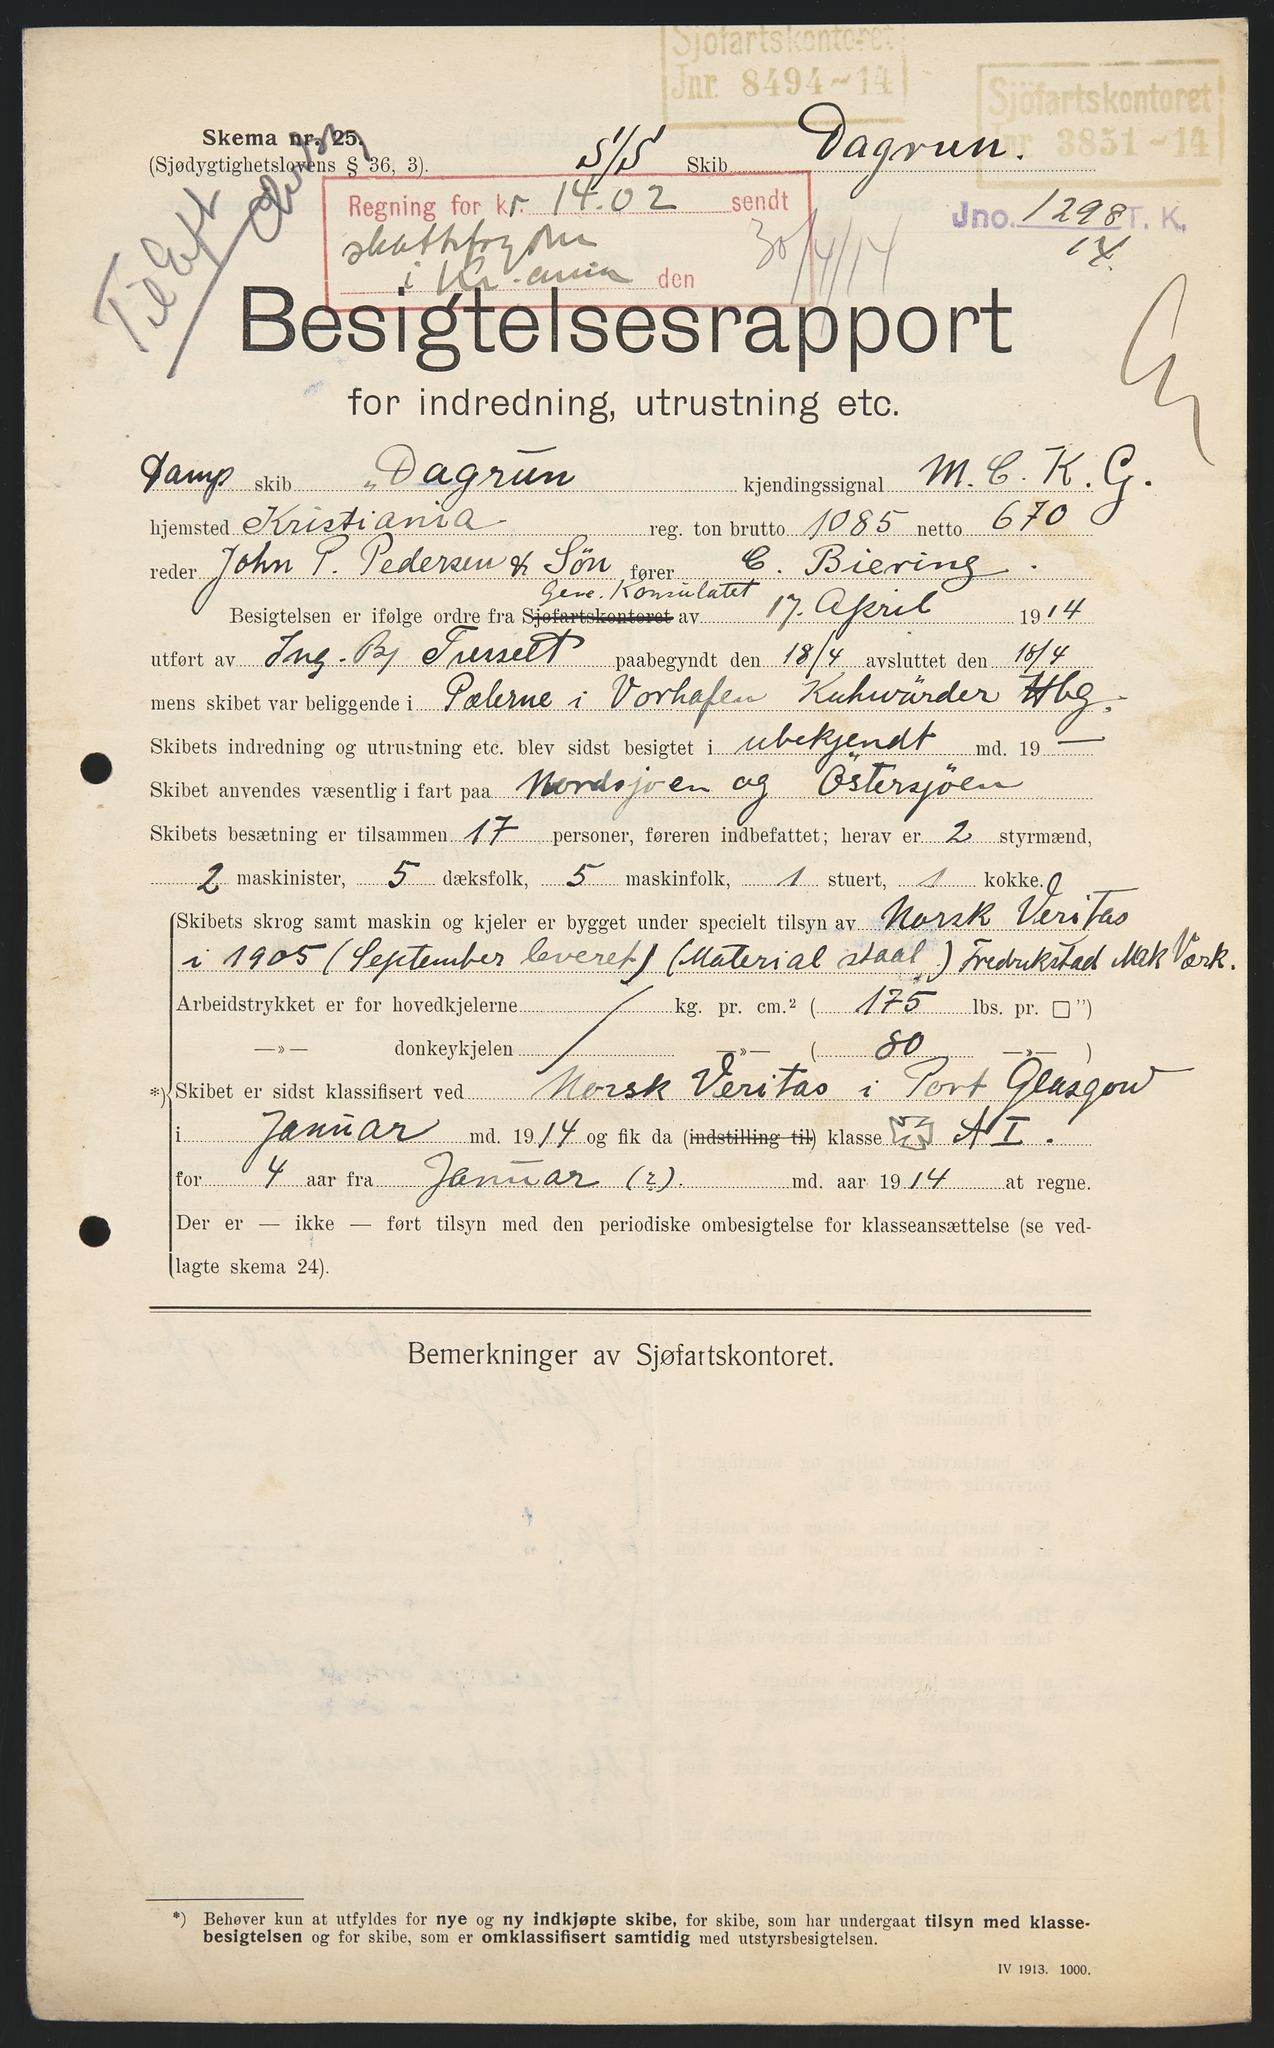 Sjöfartskontoret
Jnr. 8494-14
Sjöfartskontoret
Jnr 3851-14
Skema nr. 25.
(Sjödygtighetslovens § 36, 3).
S/S Skib Dagrun.
Regning for kr. 14.02 sendt
i Kr.ania den 30/4/14
Jno. 1298 T. K.
14.
Besigtelsesrapport
for indredning, utrustning etc.
Damp skib "Dagrun kjendingssignal M. C. K. G.
hjemsted Kristiania reg. ton brutto 1085 netto 670
reder John P. Pedersen & Sön fører C. Biering.
Gene. Konsulatet
Besigtelsen er ifølge ordre fra Sjøfartskontoret av 17. April 1914
utført av Ing. Bj paabegyndt den 18/4 avsluttet den 18/4
mens skibet var beliggende i Pælerne i Vorhafen Kuhwärder Hbg.
Skibets indredning og utrustning etc. blev sidst besigtet i ubekjendt md. 19 —
Skibet anvendes væsentlig i fart paa Nordsjøen og Östersjöen
Skibets besætning er tilsammen 17 personer, føreren indbefattet; herav er 2 styrmænd,
2 maskinister, 5 dæksfolk, 5 maskinfolk, 1 stuert, 1 kokke.
Skibets skrog samt maskin og kjeler er bygget under specielt tilsyn av Norsk Veritas
i 1905 (September leveret) (Material staal) Fredrikstad Mek Værk.
Arbeidstrykket er for hovedkjelerne / kg. pr. cm.² ( 175 lbs. pr. □")
—»— donkeykjelen / —»— ( 80 —»— )
*) Skibet er sidst klassifisert ved Norsk Veritas i Port Glasgow
i Januar md. 1914 og fik da (indstilling til) klasse A I.
for 4 aar fra Januar (2). md. aar 1914 at regne.
Der er — ikke — ført tilsyn med den periodiske ombesigtelse for klasseansættelse (se ved-
lagte skema 24).
Bemerkninger av Sjøfartskontoret.
*) Behøver kun at utfyldes for nye og ny indkjøpte skibe, for skibe, som har undergaat tilsyn med klasse-
besigtelsen og for skibe, som er omklassifisert samtidig med utstyrsbesigtelsen.
IV 1913. 1000.